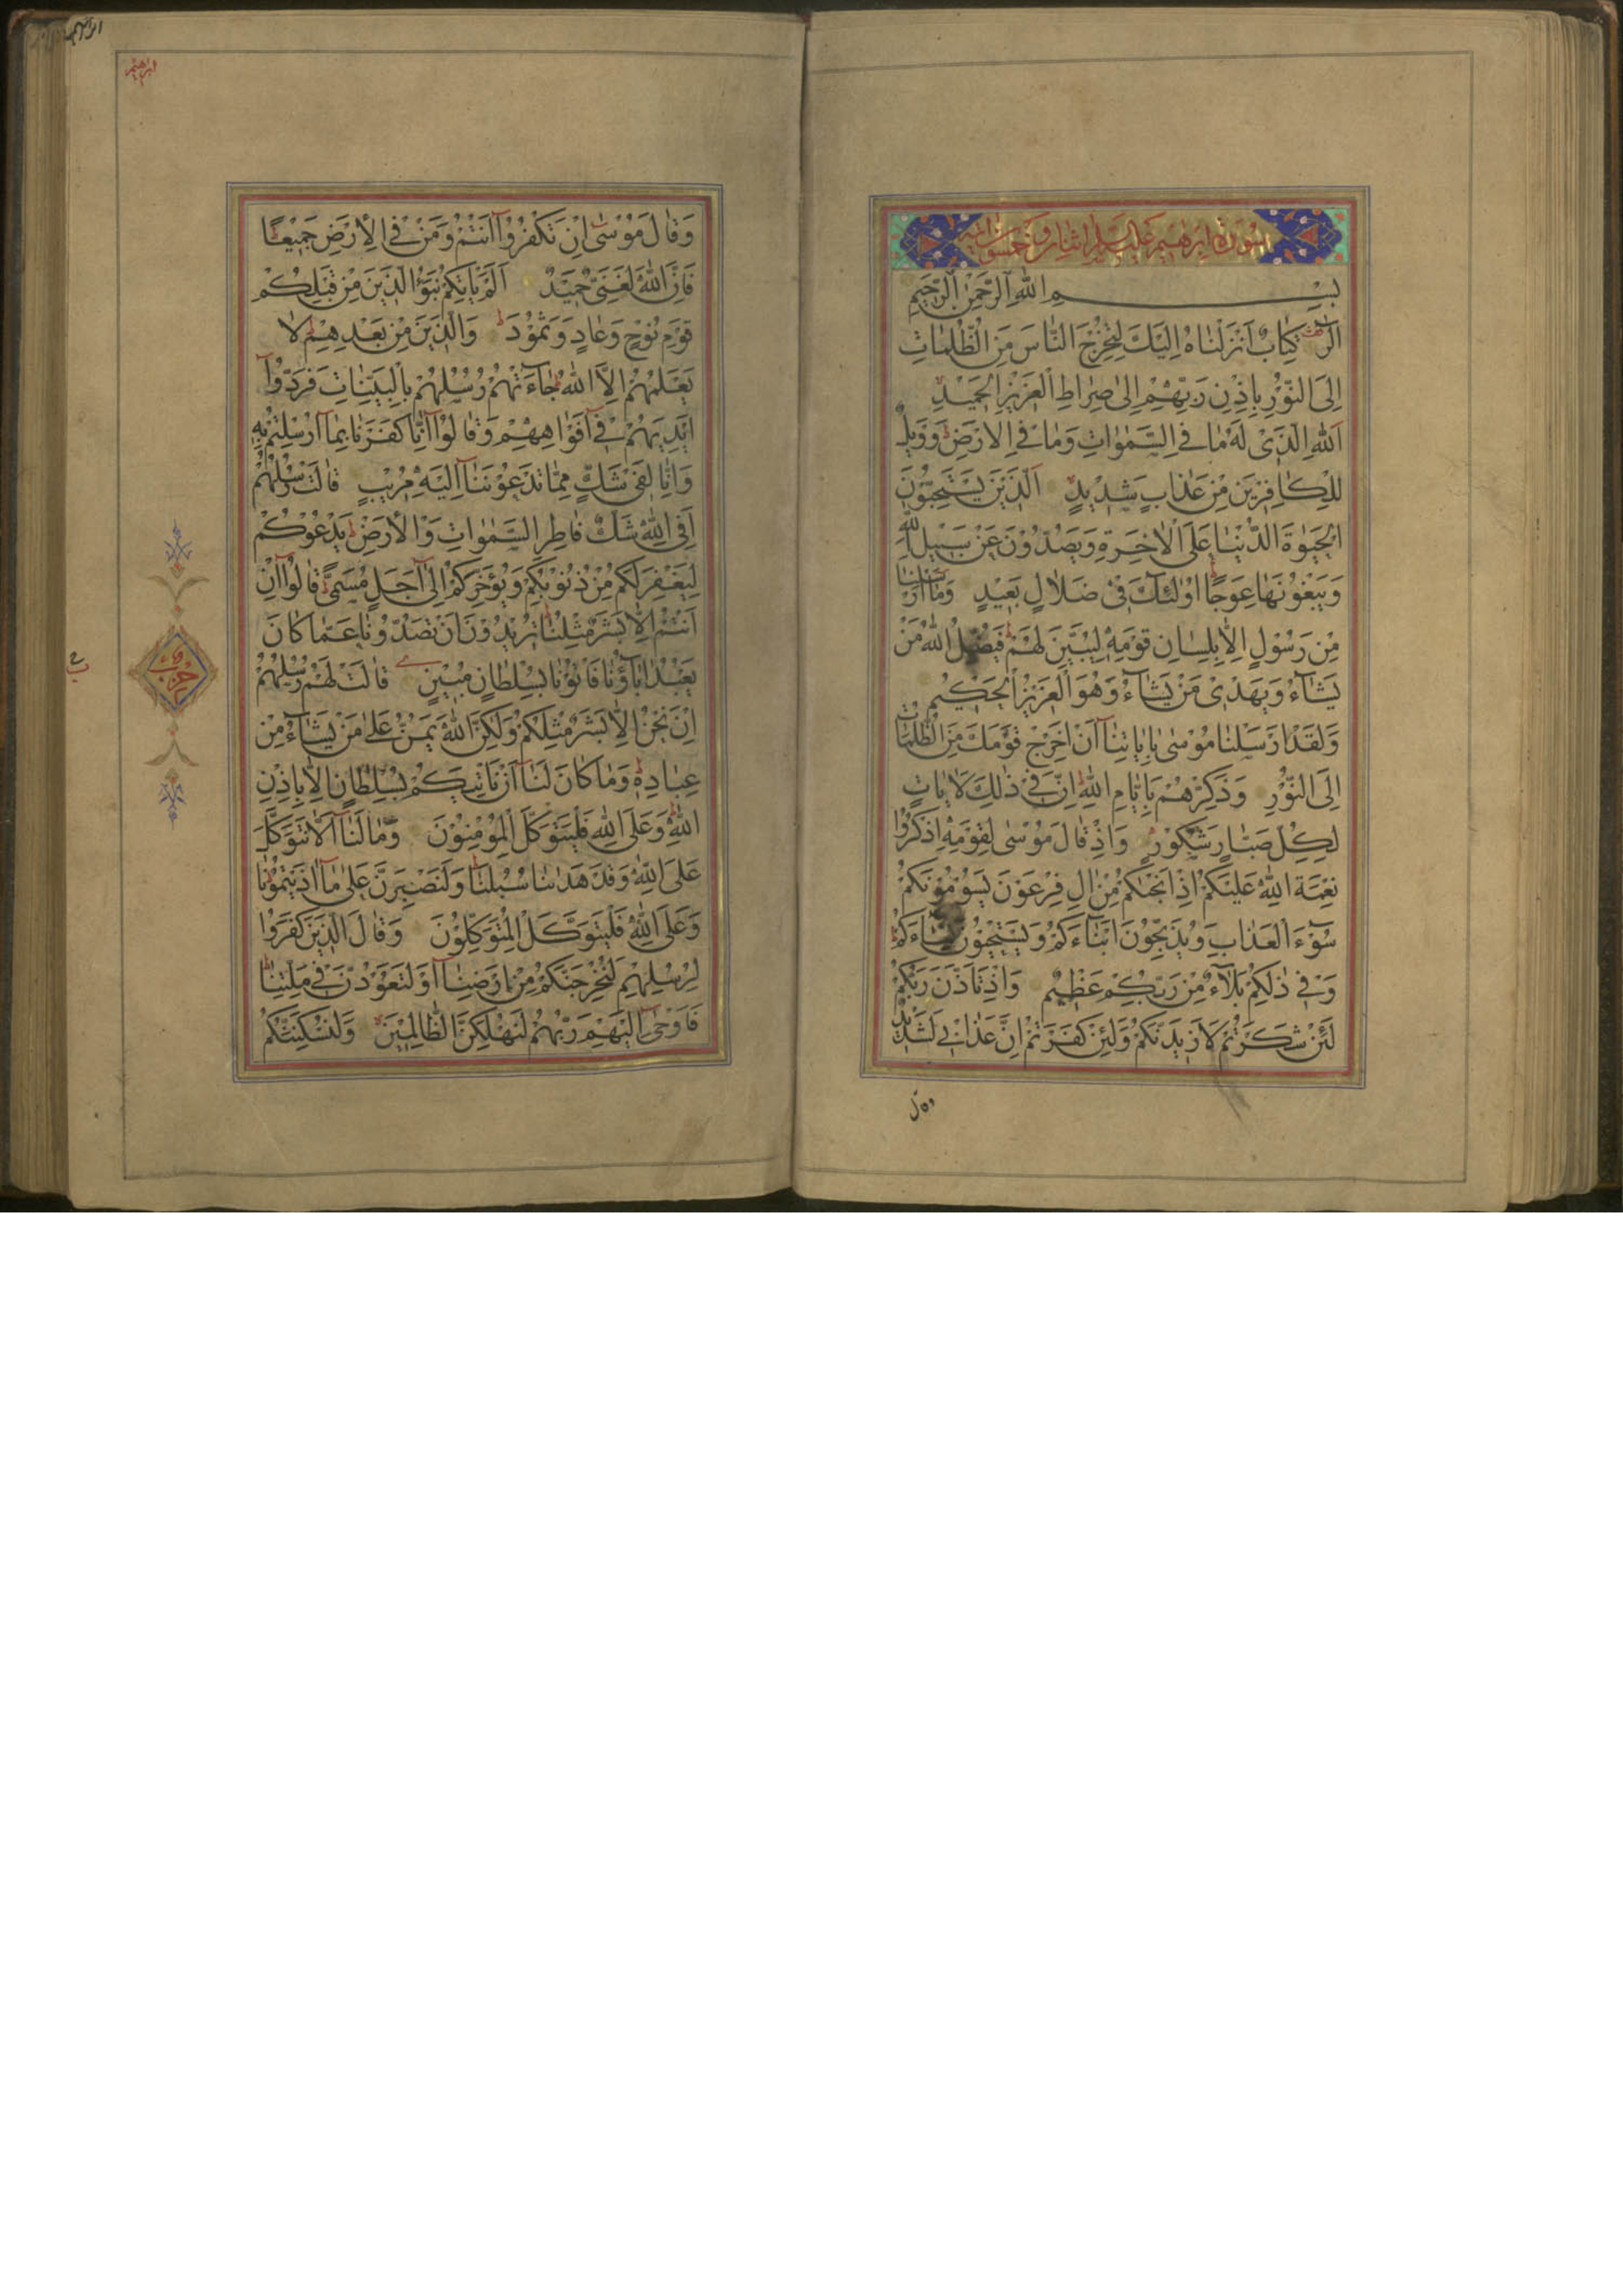 سورة ابرهيم عليه السلم اثنان وخمسون اية
بِسْمِ اللهِ الرَّحْمٰنِ الرَّحِيمِ
الر كِتَابٌ اَنْزَلْنَاهُ اِلَيْكَ لِتُخْرِجَ النَّاسَ مِنَ الظُّلُمَاتِ
اِلَى النُّورِ بِاِذْنِ رَبِّهِمْ اِلٰى صِرَاطِ الْعَزِيزِ الْحَمِيدِ
اَللهِ الَّذِى لَهُ مَا فِى السَّمٰوَاتِ وَمَا فِى الْاَرْضِ وَوَيْلٌ
لِلْكَافِرِينَ مِنْ عَذَابٍ شَدِيدٍ اَلَّذِينَ يَسْتَحِبُّونَ
الْحَيٰوةَ الدُّنْيَا عَلَى الْاٰخِرَةِ وَيَصُدُّونَ عَنْ سَبِيلِ اللهِ
وَيَبْغُونَهَا عِوَجًا اُولٰئِكَ فِى ضَلَالٍ بَعِيدٍ وَمَا اَرْسَلْنَا
مِنْ رَسُولٍ اِلَّا بِلِسَانِ قَوْمِهِ لِيُبَيِّنَ لَهُمْ فَيُضِلُّ اللهُ مَنْ
يَشَاءُ وَيَهْدِى مَنْ يَشَاءُ وَهُوَ الْعَزِيزُ الْحَكِيمُ
وَلَقَدْ اَرْسَلْنَا مُوسٰى بِاٰيَاتِنَا اَنْ اَخْرِجْ قَوْمَكَ مِنَ الظُّلُمَاتِ
اِلَى النُّورِ وَذَكِّرْهُمْ بِاَيَّامِ اللهِ اِنَّ فِى ذٰلِكَ لَاٰيَاتٍ
لِكُلِّ صَبَّارٍ شَكُورٍ وَاِذْ قَالَ مُوسٰى لِقَوْمِهِ اذْكُرُوا
نِعْمَةَ اللهِ عَلَيْكُمْ اِذْ اَنْجٰيكُمْ مِنْ اٰلِ فِرْعَوْنَ يَسُومُونَكُمْ
سُوءَ الْعَذَابِ وَيُذَبِّحُونَ اَبْنَاءَكُمْ وَيَسْتَحْيُونَ نِسَاءَكُمْ
وَفِى ذٰلِكُمْ بَلَاءٌ مِنْ رَبِّكُمْ عَظِيمٌ وَاِذْ تَاَذَّنَ رَبُّكُمْ
لَئِنْ شَكَرْتُمْ لَاَزِيدَنَّكُمْ وَلَئِنْ كَفَرْتُمْ اِنَّ عَذَابِى لَشَدِيدٌ
وقال
ابرهيم
ابرهيم
وَقَالَ مُوسٰى اِنْ تَكْفُرُوا اَنْتُمْ وَمَنْ فِى الْاَرْضِ جَمِيعًا
فَاِنَّ اللهَ لَغَنِىٌّ حَمِيدٌ اَلَمْ يَاْتِكُمْ نَبَؤُا الَّذِينَ مِنْ قَبْلِكُمْ
قَوْمِ نُوحٍ وَعَادٍ وَثَمُودَ وَالَّذِينَ مِنْ بَعْدِهِمْ لَا
يَعْلَمُهُمْ اِلَّا اللهُ جَاءَتْهُمْ رُسُلُهُمْ بِالْبَيِّنَاتِ فَرَدُّوا
اَيْدِيَهُمْ فِى اَفْوَاهِهِمْ وَقَالُوا اِنَّا كَفَرْنَا بِمَا اُرْسِلْتُمْ بِهِ
وَاِنَّا لَفِى شَكٍّ مِمَّا تَدْعُونَنَا اِلَيْهِ مُرِيبٍ قَالَتْ رُسُلُهُمْ
اَفِى اللهِ شَكٌّ فَاطِرِ السَّمٰوَاتِ وَالْاَرْضِ يَدْعُوكُمْ
لِيَغْفِرَ لَكُمْ مِنْ ذُنُوبِكُمْ وَيُؤَخِّرَكُمْ اِلٰى اَجَلٍ مُسَمًّى قَالُوا اِنْ
اَنْتُمْ اِلَّا بَشَرٌ مِثْلُنَا تُرِيدُونَ اَنْ تَصُدُّونَا عَمَّا كَانَ
يَعْبُدُ اٰبَاؤُنَا فَاْتُونَا بِسُلْطَانٍ مُبِينٍ قَالَتْ لَهُمْ رُسُلُهُمْ
اِنْ نَحْنُ اِلَّا بَشَرٌ مِثْلُكُمْ وَلٰكِنَّ اللهَ يَمُنُّ عَلٰى مَنْ يَشَاءُ مِنْ
عِبَادِهِ وَمَا كَانَ لَنَا اَنْ نَاْتِيَكُمْ بِسُلْطَانٍ اِلَّا بِاِذْنِ
اللهِ وَعَلَى اللهِ فَلْيَتَوَكَّلِ الْمُؤْمِنُونَ وَمَا لَنَا اَلَّا نَتَوَكَّلَ
عَلَى اللهِ وَقَدْ هَدٰينَا سُبُلَنَا وَلَنَصْبِرَنَّ عَلٰى مَا اٰذَيْتُمُونَا
وَعَلَى اللهِ فَلْيَتَوَكَّلِ الْمُتَوَكِّلُونَ وَقَالَ الَّذِينَ كَفَرُوا
لِرُسُلِهِمْ لَنُخْرِجَنَّكُمْ مِنْ اَرْضِنَا اَوْ لَتَعُودُنَّ فِى مِلَّتِنَا
فَاَوْحٰى اِلَيْهِمْ رَبُّهُمْ لَنُهْلِكَنَّ الظَّالِمِينَ وَلَنُسْكِنَنَّكُمْ
حزب